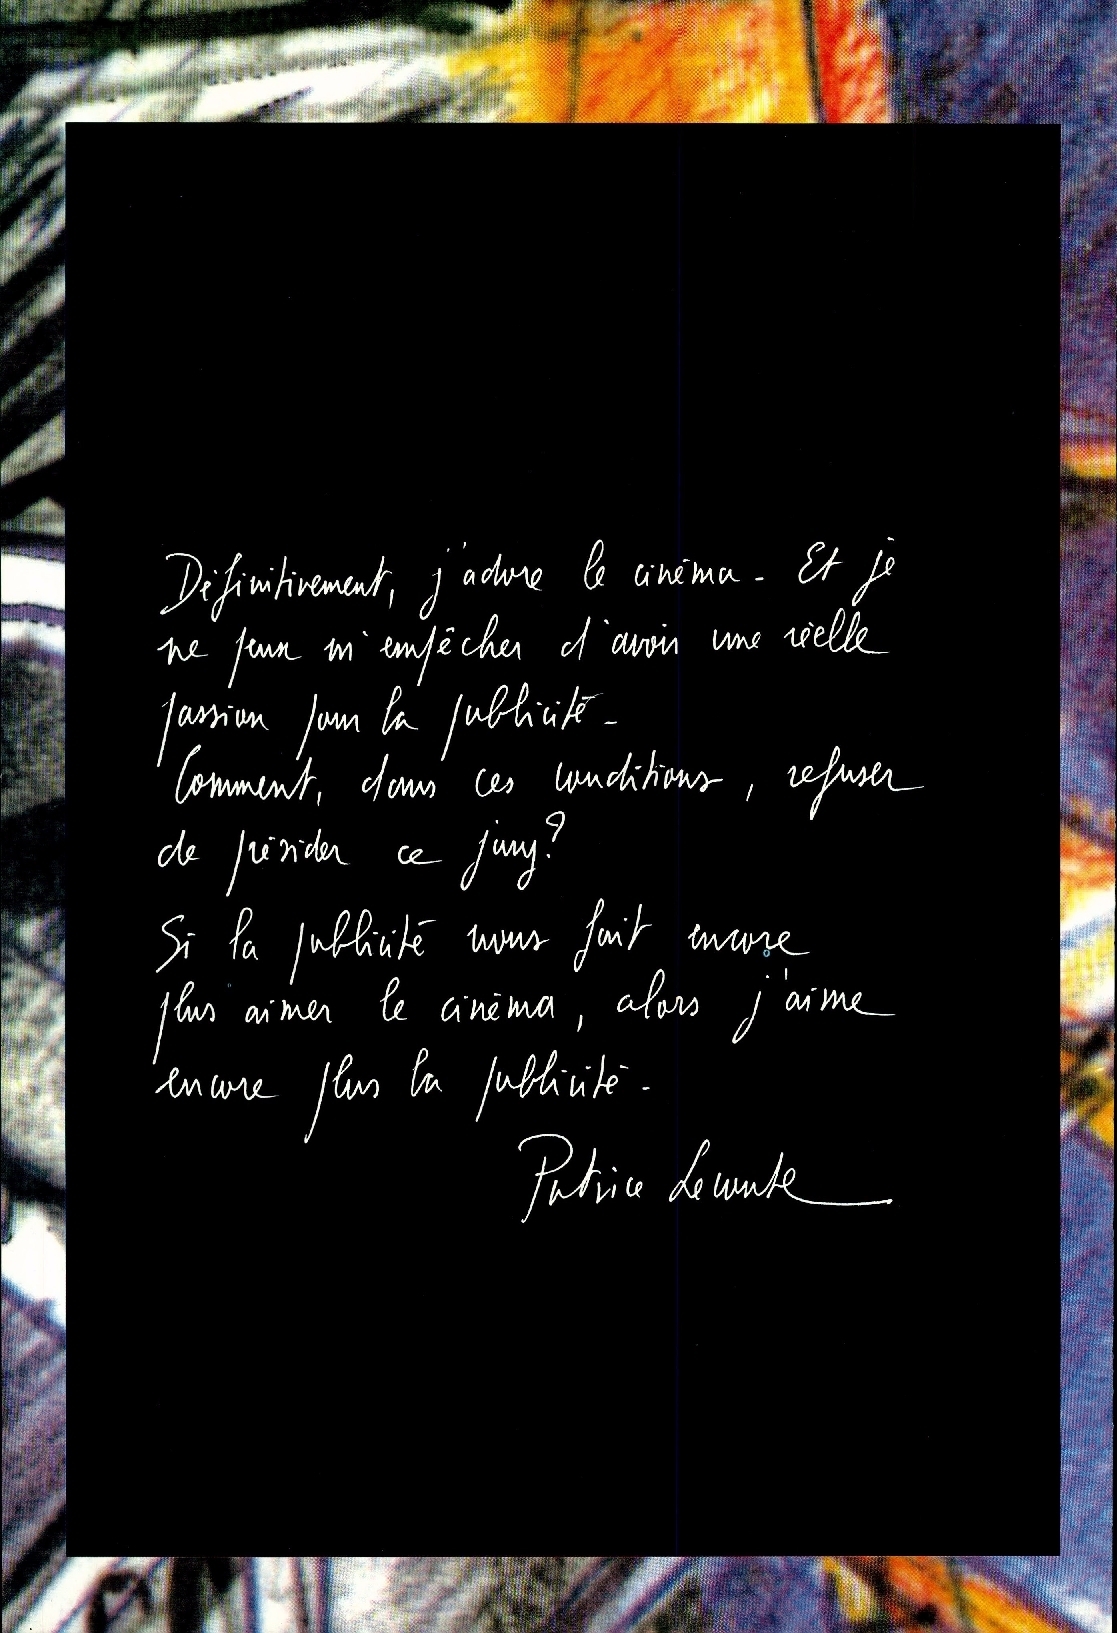 Définitivement, j'adore le cinéma. Et je
ne peux m'empêcher d'avoir une réelle
passion pour la publicité.
Comment, dans ces conditions, refuser
de présider ce jury?
Si la publicité nous fait encore
plus aimer le cinéma, alors j'aime
encore plus la publicité.
Patrice Leconte